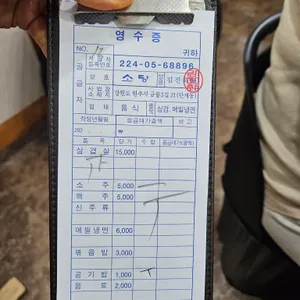 영 수 증
NO. 귀하
사업자 등록번호 224-05-68896
상호 소팅 성명
사업장 소재지
업태 음식 종목 삼겹,메밀냉면
작성년월일 공급대가총액 비고
202 . . ₩
품목 단가 수량 공급대가(금액)
삼겹살 15,000
소주 5,000
맥주 5,000
신주류
메밀냉면 6,000
볶음밥 3,000
공기밥 1,000
음료 2,000